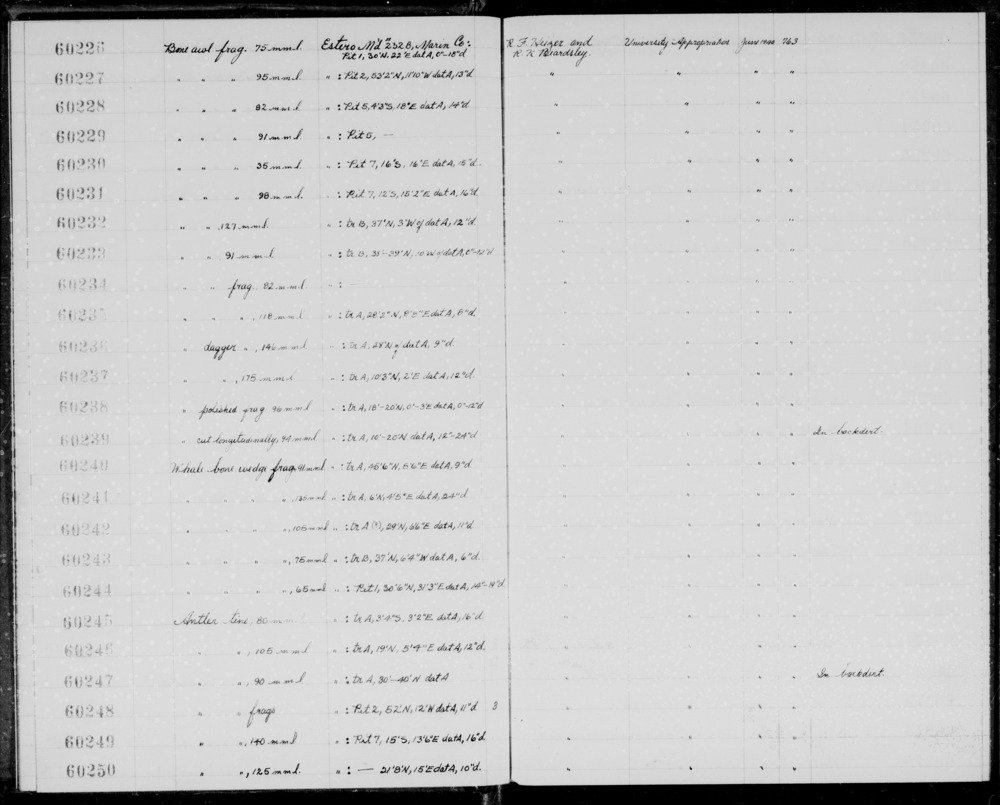 60226 Bone awl frag. 75 mm l Estero Md # 232 B, Marin Co: R. F. Heizer and University Appropriation June 1940 763
Pit 1, 30'N, 22'E dat A, 0"-18"d R. K. Beardsley.
60227 " " " 95 mm l " : Pit 2, 53'2"N, 11'10"W dat A, 13"d " " " "
60228 " " " 82 mm l " : Pit 5, 4'3"S, 18'E dat A, 14"d " " " "
60229 " " " 91 mm l " : Pit 5, — " " " "
60230 " " " 35 mm l " : Pit 7, 16'S, 16'E dat A, 15"d. " " " "
60231 " " " 98 mm l. " : Pit 7, 12'S, 15'2"E dat A, 16"d. " " " "
60232 " " , 127 mm l. " : tr B, 37'N, 3'W of dat A, 12"d. " " " "
60233 " " , 91 mm l " : tr B, 35'-39'N, 10'W of dat A, 0"-12"d " " " "
60234 " " frag. 82 mm l " : — " " " "
60235 " " " , 118 mm l " : tr A, 28'2"N, 8'5"E dat A, 8"d " " " "
60236 " dagger " , 146 mm l " : tr A, 28'N of dat A, 9"d. " " " "
60237 " " " , 175 mm l " : tr A, 10'3"N, 2'E dat A, 12"d. " " " "
60238 " polished frag 96 mm l " : tr A, 18'-20'N, 0'-3'E dat A, 0"-12"d " " " "
60239 " cut longitudinally, 94 mm l " : tr A, 10'-20'N dat A, 12"-24"d " " " " In backdirt
60240 Whale bone wedge frag, 91 mm l " : tr A, 45'6"N, 5'6"E dat A, 9"d " " " "
60241 " " " " , 125 mm l " : tr A, 6'N, 4'5"E dat A, 24"d " " " "
60242 " " " " , 105 mm l " : tr A (?), 29'N, 6'6"E dat A, 11"d " " " "
60243 " " " " , 75 mm l " : tr B, 37'N, 6'4"W dat A, 6"d. " " " "
60244 " " " " , 65 mm l " : Pit 1, 30'6"N, 31'3"E dat A, 14"-19"d " " " "
60245 Antler tine, 80 mm " : tr A, 3'4"S, 3'2"E dat A, 16"d " " " "
60246 " " , 105 mm l " : tr A, 19'N, 5'4"E dat A, 12"d. " " " "
60247 " " , 90 mm l " : tr A, 30'-40'N dat A " " " " In backdirt
60248 " " frags " : Pit 2, 52'N, 12'W dat A, 11"d 3 " " " "
60249 " " , 140 mm l " : Pit 7, 15'S, 13'6"E dat A, 16"d " " " "
60250 " " , 125 mm l. " : — 21'8"N, 15'E dat A, 10"d. " " " "